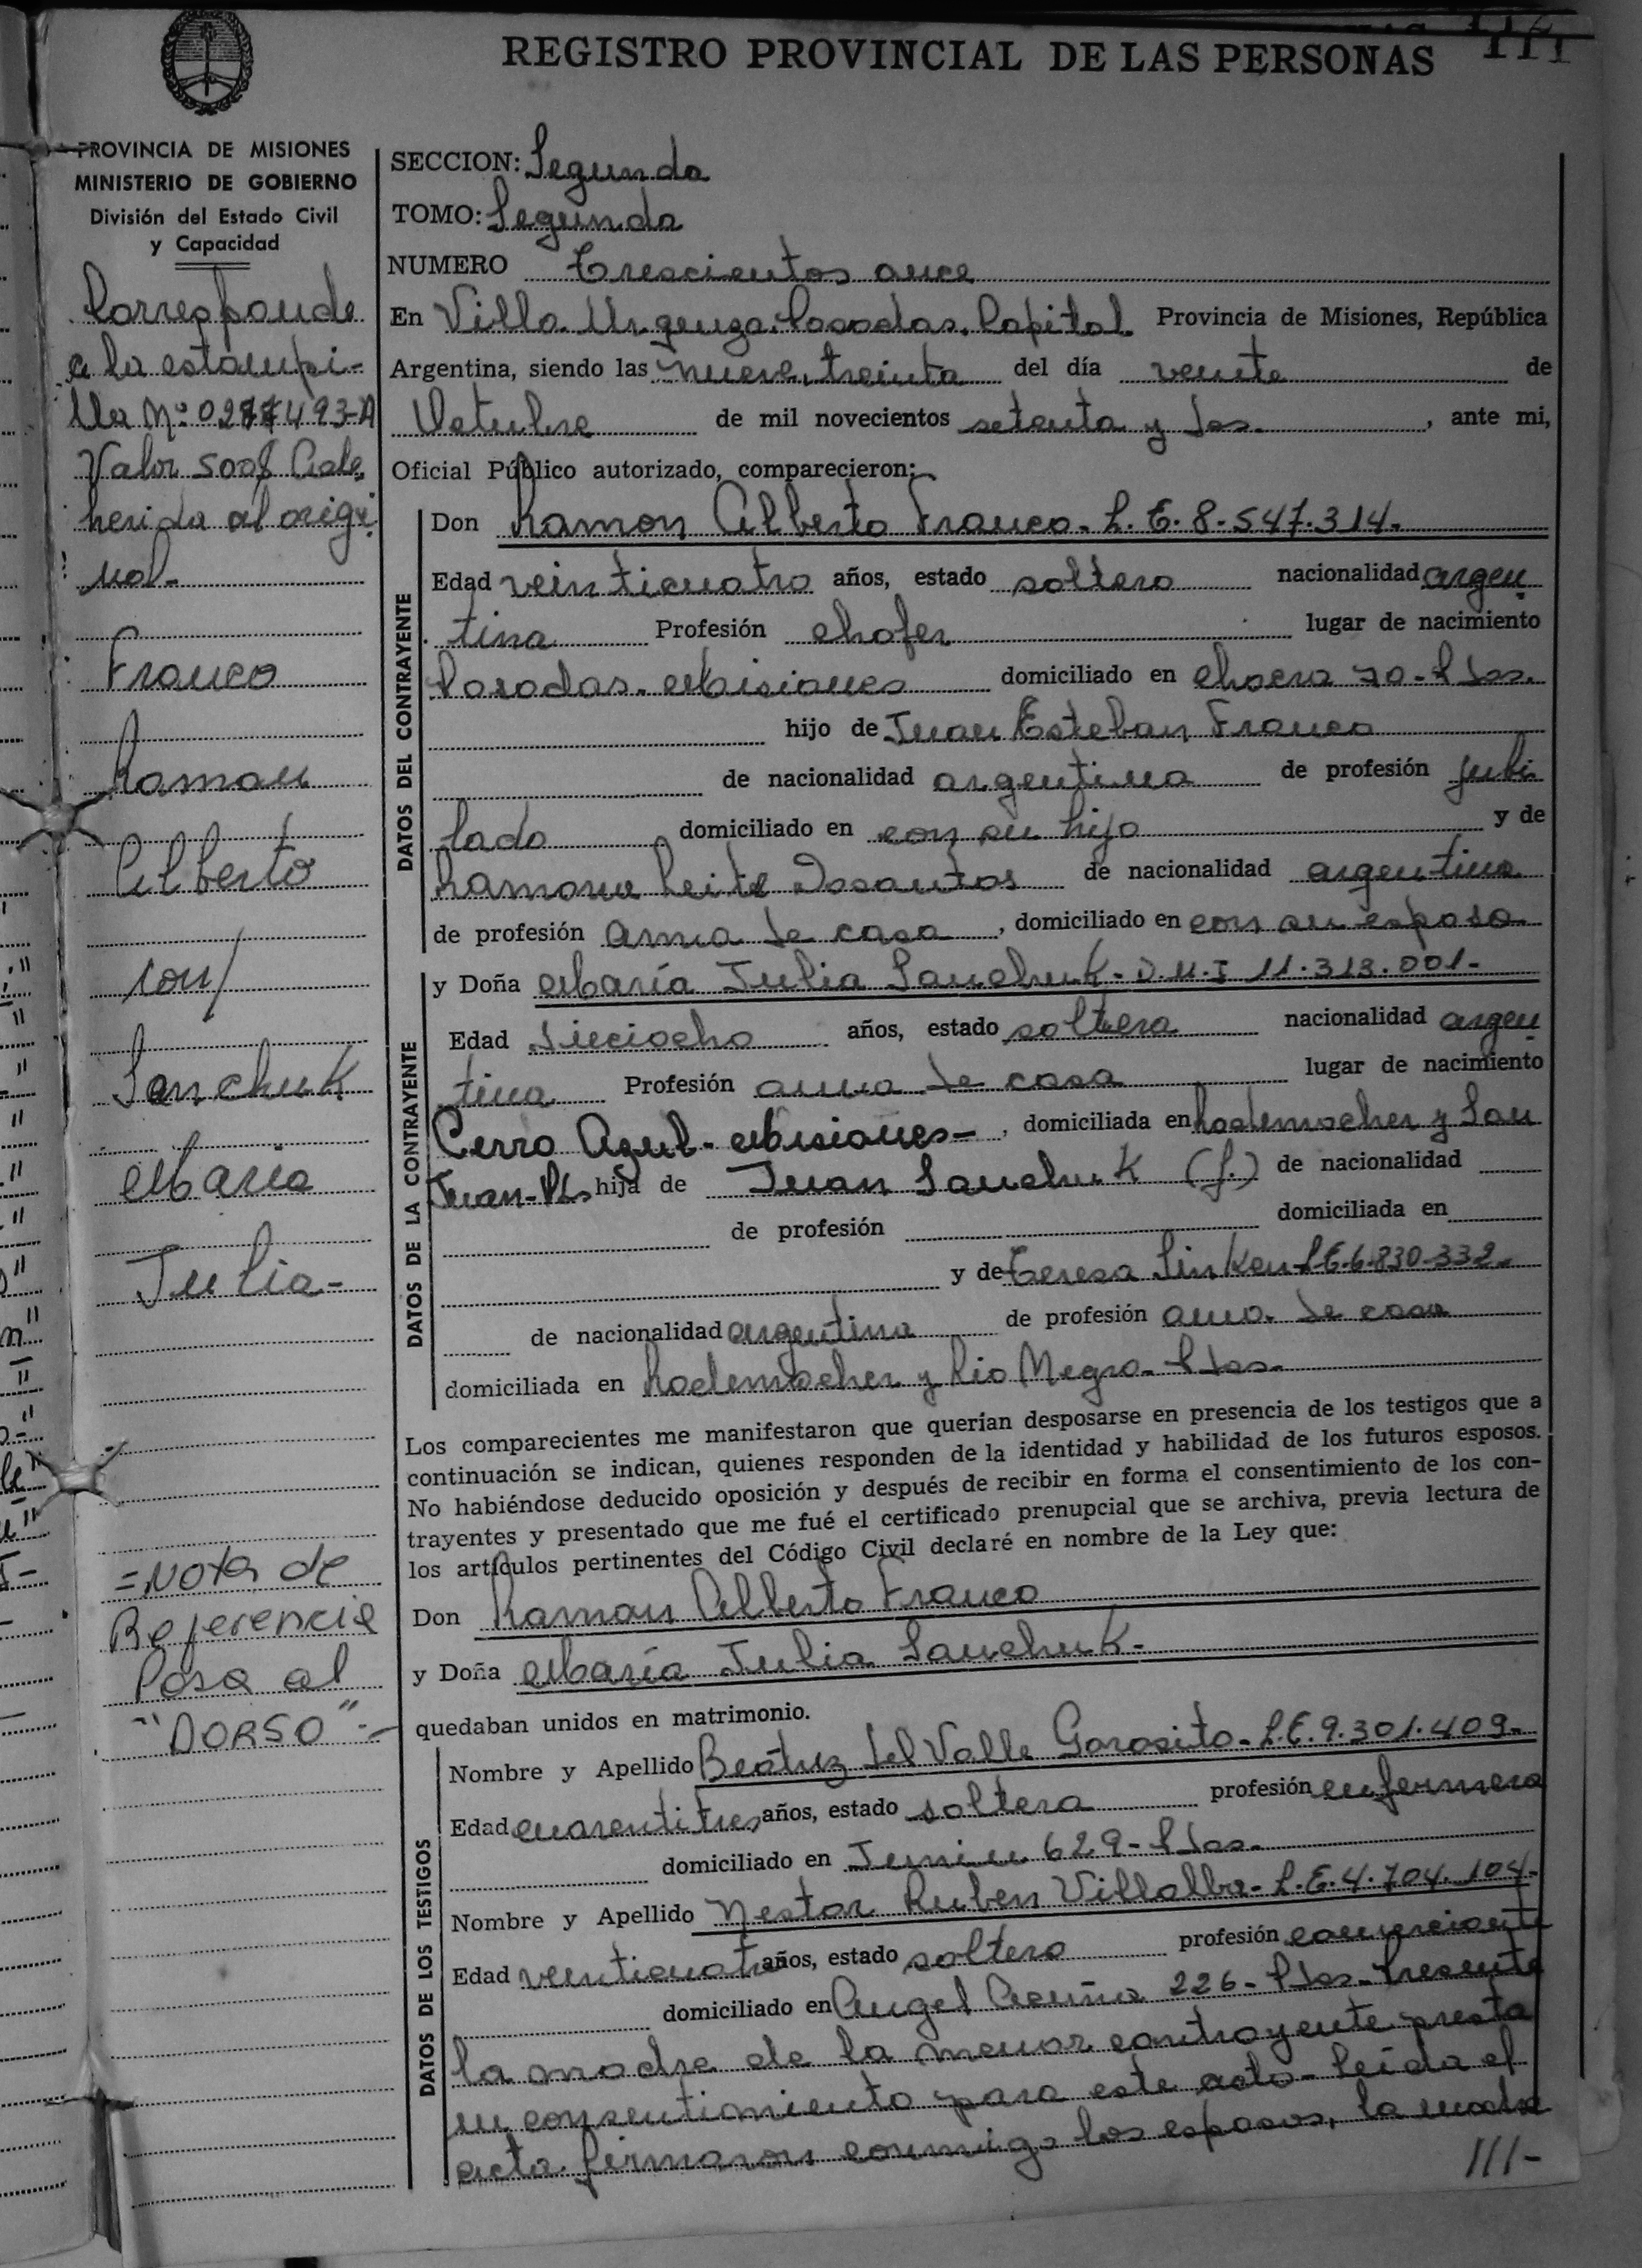 REGISTRO PROVINCIAL DE LAS PERSONAS
PROVINCIA DE MISIONES
MINISTERIO DE GOBIERNO
División del Estado Civil
y Capacidad
Corresponde
a la estampi-
lla Nº 0277493-A
Valor 500$ Ade
herida al origi
nal-
Franco
Ramon
Alberto
con/
Sanchuk
Maria
Julia-
=Nota de
Referencia
Pasa al
"DORSO"-
SECCION: Segunda
TOMO: Segundo
NUMERO Trescientos once
En Villa Urquiza, Posadas, Capital Provincia de Misiones, República
Argentina, siendo las nueve, treinta del día veinte de
Octubre de mil novecientos setenta y dos , ante mi,
Oficial Público autorizado, comparecieron:
DATOS DEL CONTRAYENTE
Don Ramon Alberto Franco- L.E. 8-547.314-
Edad veinticuatro años, estado soltero nacionalidad argen
tina Profesión chofer lugar de nacimiento
Posadas- Misiones domiciliado en chacra 70- Pdas.
hijo de Juan Esteban Franco
de nacionalidad argentina de profesión jubi
lado domiciliado en con su hijo y de
Ramona Leite Dosantos de nacionalidad argentina
de profesión ama de casa , domiciliado en con su esposo
DATOS DE LA CONTRAYENTE
y Doña María Julia Sanchuk- D.N.I 11.313.001-
Edad dieciocho años, estado soltera nacionalidad argen
tina Profesión ama de casa lugar de nacimiento
Cerro Azul- Misiones- , domiciliada en Rademacher y San
Juan-Pds hija de Juan Sanchuk (f.) de nacionalidad
de profesión domiciliada en
y de Teresa Sinken L.E. 6.830-332-
de nacionalidad argentina de profesión ama de casa
domiciliada en Rademacher y Rio Negro- Pdas-
Los comparecientes me manifestaron que querían desposarse en presencia de los testigos que a
continuación se indican, quienes responden de la identidad y habilidad de los futuros esposos.
No habiéndose deducido oposición y después de recibir en forma el consentimiento de los con-
trayentes y presentado que me fué el certificado prenupcial que se archiva, previa lectura de
los artículos pertinentes del Código Civil declaré en nombre de la Ley que:
Don Ramon Alberto Franco
y Doña María Julia Sanchuk-
quedaban unidos en matrimonio.
DATOS DE LOS TESTIGOS
Nombre y Apellido Beatriz del Valle Garosito- L.E. 9.301.409-
Edad cuarentitres años, estado soltera profesión enfermera
domiciliado en Junin 629- Pdas-
Nombre y Apellido Nestor Ruben Villalba- L.E. 4.704.104-
Edad venticuatro años, estado soltero profesión comerciante
domiciliado en Angel Acuña 226- Pdas- Presente
la madre de la menor contrayente presta
su consentimiento para este acto- Leída el
acta firmaron conmigo los esposos, la madre
///-